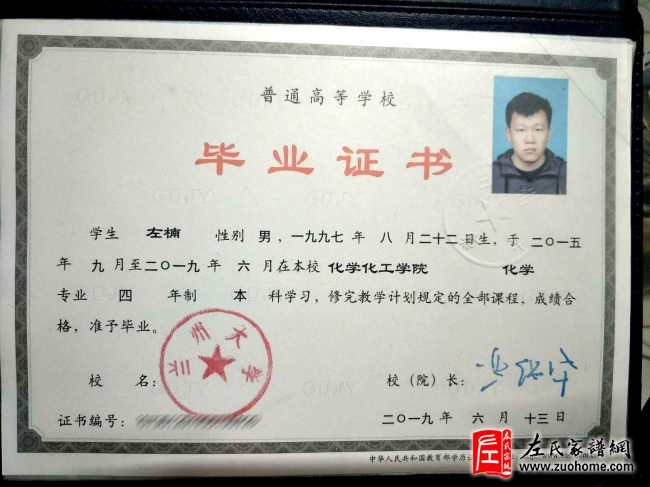 普通高等学校
毕业证书
学生 左楠 性别 男，一九九七 年 八 月二十二日生，于 二〇一五
年 九 月至二〇一九 年 六 月在本校 化学化工学院 化学
专业 四 年制 本 科学习，修完教学计划规定的全部课程，成绩合
格，准予毕业。
兰州大学
校 名： 校（院）长：
证书编号： 二〇一九 年 六 月 十三 日
中华人民共和国教育部学历
左氏家谱網
www.zuohome.com